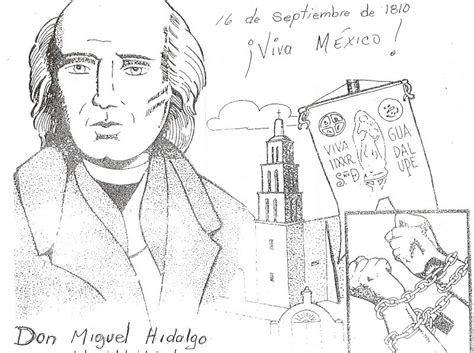 16 de septiembre de 1810
¡Viva México!
VIVA
GUADALUPE
Don Miguel Hidalgo